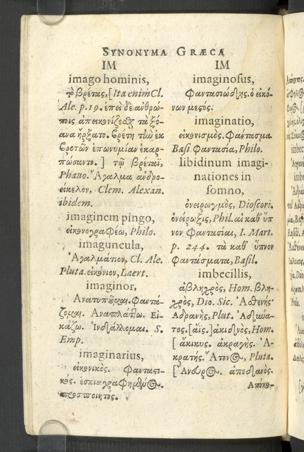 SYNONYMA GRÆCA
IM
imago hominis,
τὸ βρέτας. [Ita enim Cl.
Ale. p. 19. ἐπεὶ δὲ ἀνθρώ-
ποις
βρετῶν ἐπωνυμίαν ἐκαρ-
τὸ βρέτας,
Phano. Ἄγαλμα ἀνδρο-
είκελον, Clem. Alexan.
ibidem.
imaginem pingo,
εἰκονογραφέω, Philo.
imaguncula,
Ἀγαλμάτιον, Cl. Ale.
Pluta. εἰκόνιον, Laert.
imaginor,
Ἀνατυπόομαι. Φαντά-
ζομαι. Ἀναπλάττω. Εἰ-
κάζω. Ἰνδάλλομαι. S.
Emp.
imaginarius,
εἰκονικός. Φανταστι-
κός.
IM
imaginosus,
Φαντασιώδης. ὁ εἰκό-
νων μεστός.
imaginatio,
εἰκονισμός. Φάντασμα.
Basi Φαντασία, Philo.
libidinum imagi-
nationes in
somno,
ὀνειρωγμός, Dioscori.
ὀνείρωξις, Phil. αἱ καθ' ὕπ
νον Φαντασίαι, I. Mart.
p. 244. τὰ καθ' ὕπνον
Φαντάσματα, Basil.
imbecillis,
ἀβληχρός, Hom. βλη-
χρός, Dio. Sic. Ἀσθενής
Ἀδρανής, Plut. Ἀδύνα-
τος. ἀκιδνός, Hom.
[ἄκικυς. Ἀ-
κρατής. Ἄτονος, Pluta.